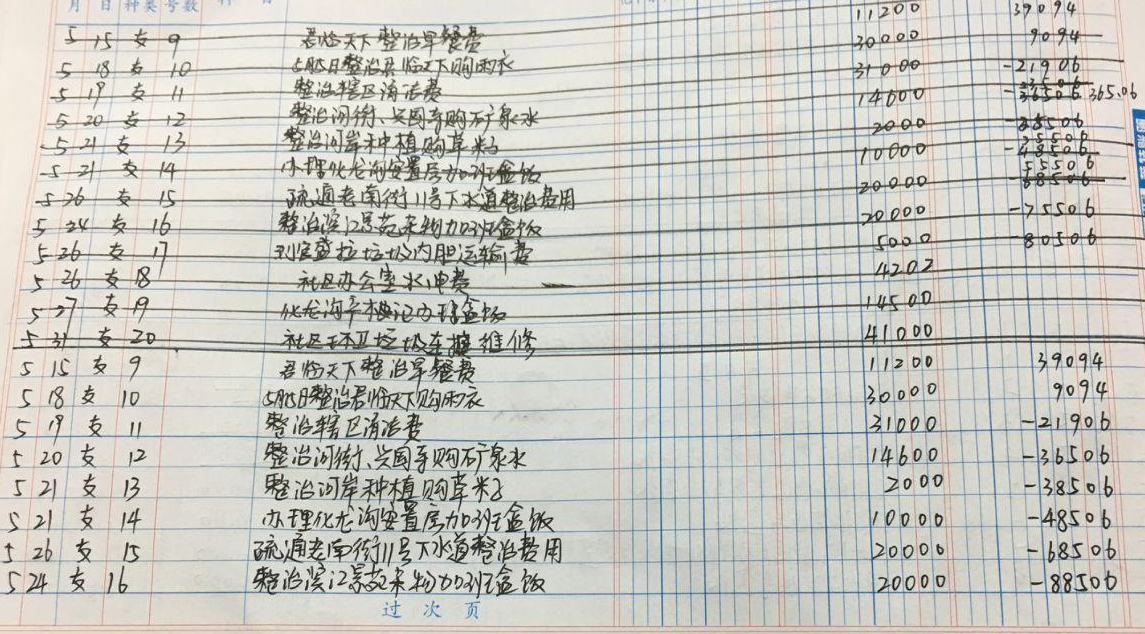 月 日 种类 号数
5 15 支 9 君临天下整治早餐费 11200 39094
5 18 支 10 5月15日整治君临天下购雨衣 30000 9094
5 19 支 11 整治辖区清洁费 31000 -21906
5 20 支 12 整治河街、兴国寺购矿泉水 14600 -36506 36506
5 21 支 13 整治河岸种植购草籽 2000 -38506
5 21 支 14 办理化龙沟安置房加班盒饭 10000 -48506
5 26 支 15 疏通老南街11号下水道整治费用 20000 -68506
5 24 支 16 整治滨江景苑杂物加班盒饭 20000 -75506
5 26 支 17 垃圾内胆运输费 5000 -80506
5 26 支 18 社区办公室水电费 4202
5 27 支 19 14500
5 31 支 20 社区环卫垃圾车 维修 41000
5 15 支 9 君临天下整治早餐费 11200 39094
5 18 支 10 5月15日整治君临天下购雨衣 30000 9094
5 19 支 11 整治辖区清洁费 31000 -21906
5 20 支 12 整治河街、兴国寺购矿泉水 14600 -36506
5 21 支 13 整治河岸种植购草籽 2000 -38506
5 21 支 14 办理化龙沟安置房加班盒饭 10000 -48506
5 26 支 15 疏通老南街11号下水道整治费用 20000 -68506
5 24 支 16 整治滨江景苑杂物加班盒饭 20000 -88506
过次页